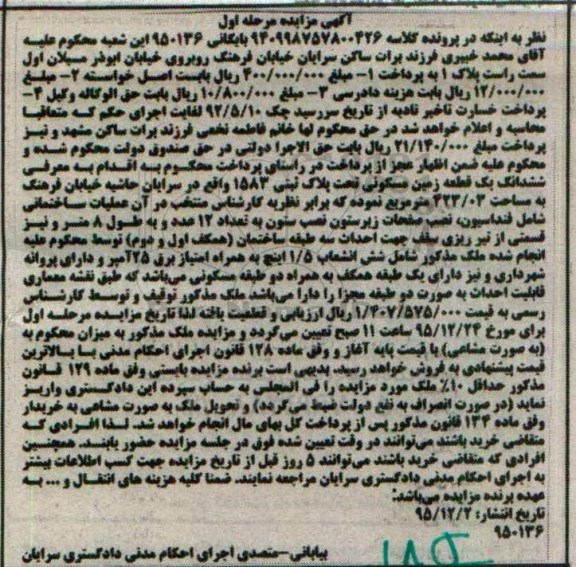 آگهی مزایده مرحله اول
نظر به اینکه در پرونده کلاسه ۹۴۰۹۹۸۷۵۷۸۰۰۴۲۶ بایگانی ۹۵۰۱۳۶ این شعبه محکوم علیه
آقای محمد خیبری فرزند برات ساکن سرایان خیابان فرهنگ روبروی خیابان ابوذر مسیلان اول
سمت راست پلاک ۱ به پرداخت ۱- مبلغ ۴۰۰/۰۰۰/۰۰۰ ریال بابت اصل خواسته ۲- مبلغ
۱۲/۰۰۰/۰۰۰ ریال بابت هزینه دادرسی ۳- مبلغ ۱۰/۸۰۰/۰۰۰ ریال بابت حق الوکاله وکیل ۴-
پرداخت خسارت تاخیر تادیه از تاریخ سررسید چک ۹۲/۵/۱۰ لغایت اجرای حکم که متعاقبا
محاسبه و اعلام خواهد شد در حق محکوم لها خانم فاطمه نخعی فرزند برات ساکن مشهد و نیز
پرداخت مبلغ ۲۱/۱۴۰/۰۰۰ ریال بابت حق الاجرا دولتی در حق صندوق دولت محکوم شده و
محکوم علیه ضمن اظهار عجز از پرداخت در راستای پرداخت محکوم به اقدام به معرفی
ششدانگ یک قطعه زمین مسکونی تحت پلاک ثبتی ۱۵۸۳ واقع در سرایان حاشیه خیابان فرهنگ
به مساحت ۳۲۳/۰۳ مترمربع نموده که برابر نظریه کارشناس منتخب در آن عملیات ساختمانی
شامل فنداسیون، نصب صفحات زیرستون نصب ستون به تعداد ۱۲ عدد و به طول ۸ متر و نیز
قسمتی از تیر ریزی سقف جهت احداث سه طبقه ساختمان (همکف اول و دوم) توسط محکوم علیه
انجام شده ملک مذکور شامل شش انشعاب ۱/۵ اینچ به همراه امتیاز برق ۲۵آمپر و دارای پروانه
شهرداری و نیز دارای یک طبقه همکف به همراه دو طبقه مسکونی می‌باشد که طبق نقشه معماری
قابلیت احداث به صورت دو طبقه مجزا را دارا می‌باشد ملک مذکور توقیف و توسط کارشناس
رسمی به قیمت ۱/۴۰۷/۵۷۵/۰۰۰ ریال ارزیابی و قطعیت یافته لذا تاریخ مزایده مرحله اول
برای مورخ ۹۵/۱۲/۲۴ ساعت ۱۱ صبح تعیین می‌گردد و مزایده ملک مذکور به میزان محکوم به
(به صورت مشاعی) با قیمت پایه آغاز و وفق ماده ۱۲۸ قانون اجرای احکام مدنی با بالاترین
قیمت پیشنهادی به فروش خواهد رسید. بدیهی است برنده مزایده بایستی وفق ماده ۱۲۹ قانون
مذکور حداقل ۱۰٪ ملک مورد مزایده را فی المجلس به حساب سپرده این دادگستری واریز
نماید (در صورت انصراف به نفع دولت ضبط می‌گردد) و تحویل ملک به صورت مشاعی به خریدار
وفق ماده ۱۳۴ قانون مذکور پس از پرداخت کل بهای مال انجام خواهد شد. لذا افرادی که
متقاضی خرید باشند می‌توانند در وقت تعیین شده فوق در جلسه مزایده حضور یابند. همچنین
افرادی که متقاضی خرید باشند می‌توانند ۵ روز قبل از تاریخ مزایده جهت کسب اطلاعات بیشتر
به اجرای احکام مدنی دادگستری سرایان مراجعه نمایند. ضمنا کلیه هزینه های انتقال و ... به
عهده برنده مزایده می‌باشد.
تاریخ انتشار: ۹۵/۱۲/۲
۹۵۰۱۳۶
بیابانی-متصدی اجرای احکام مدنی دادگستری سرایان